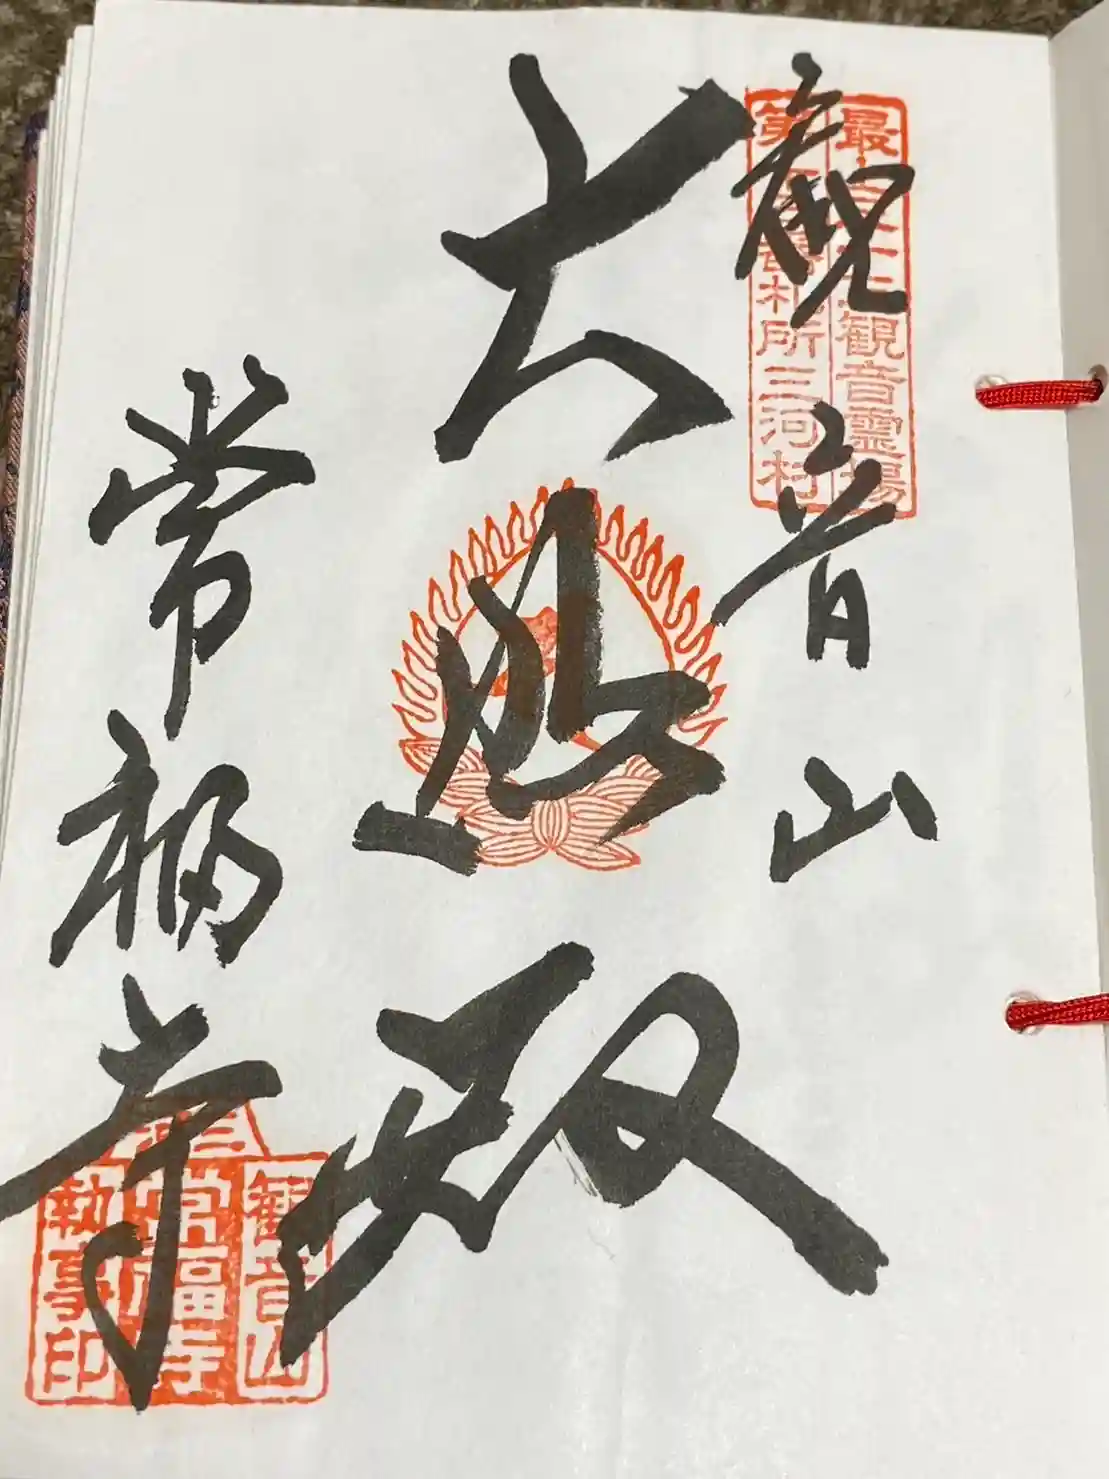 最上三十三観音霊場
第 番札所三河村
観音山
大悲殿
常福寺
三河
観音山
常福寺
執事印